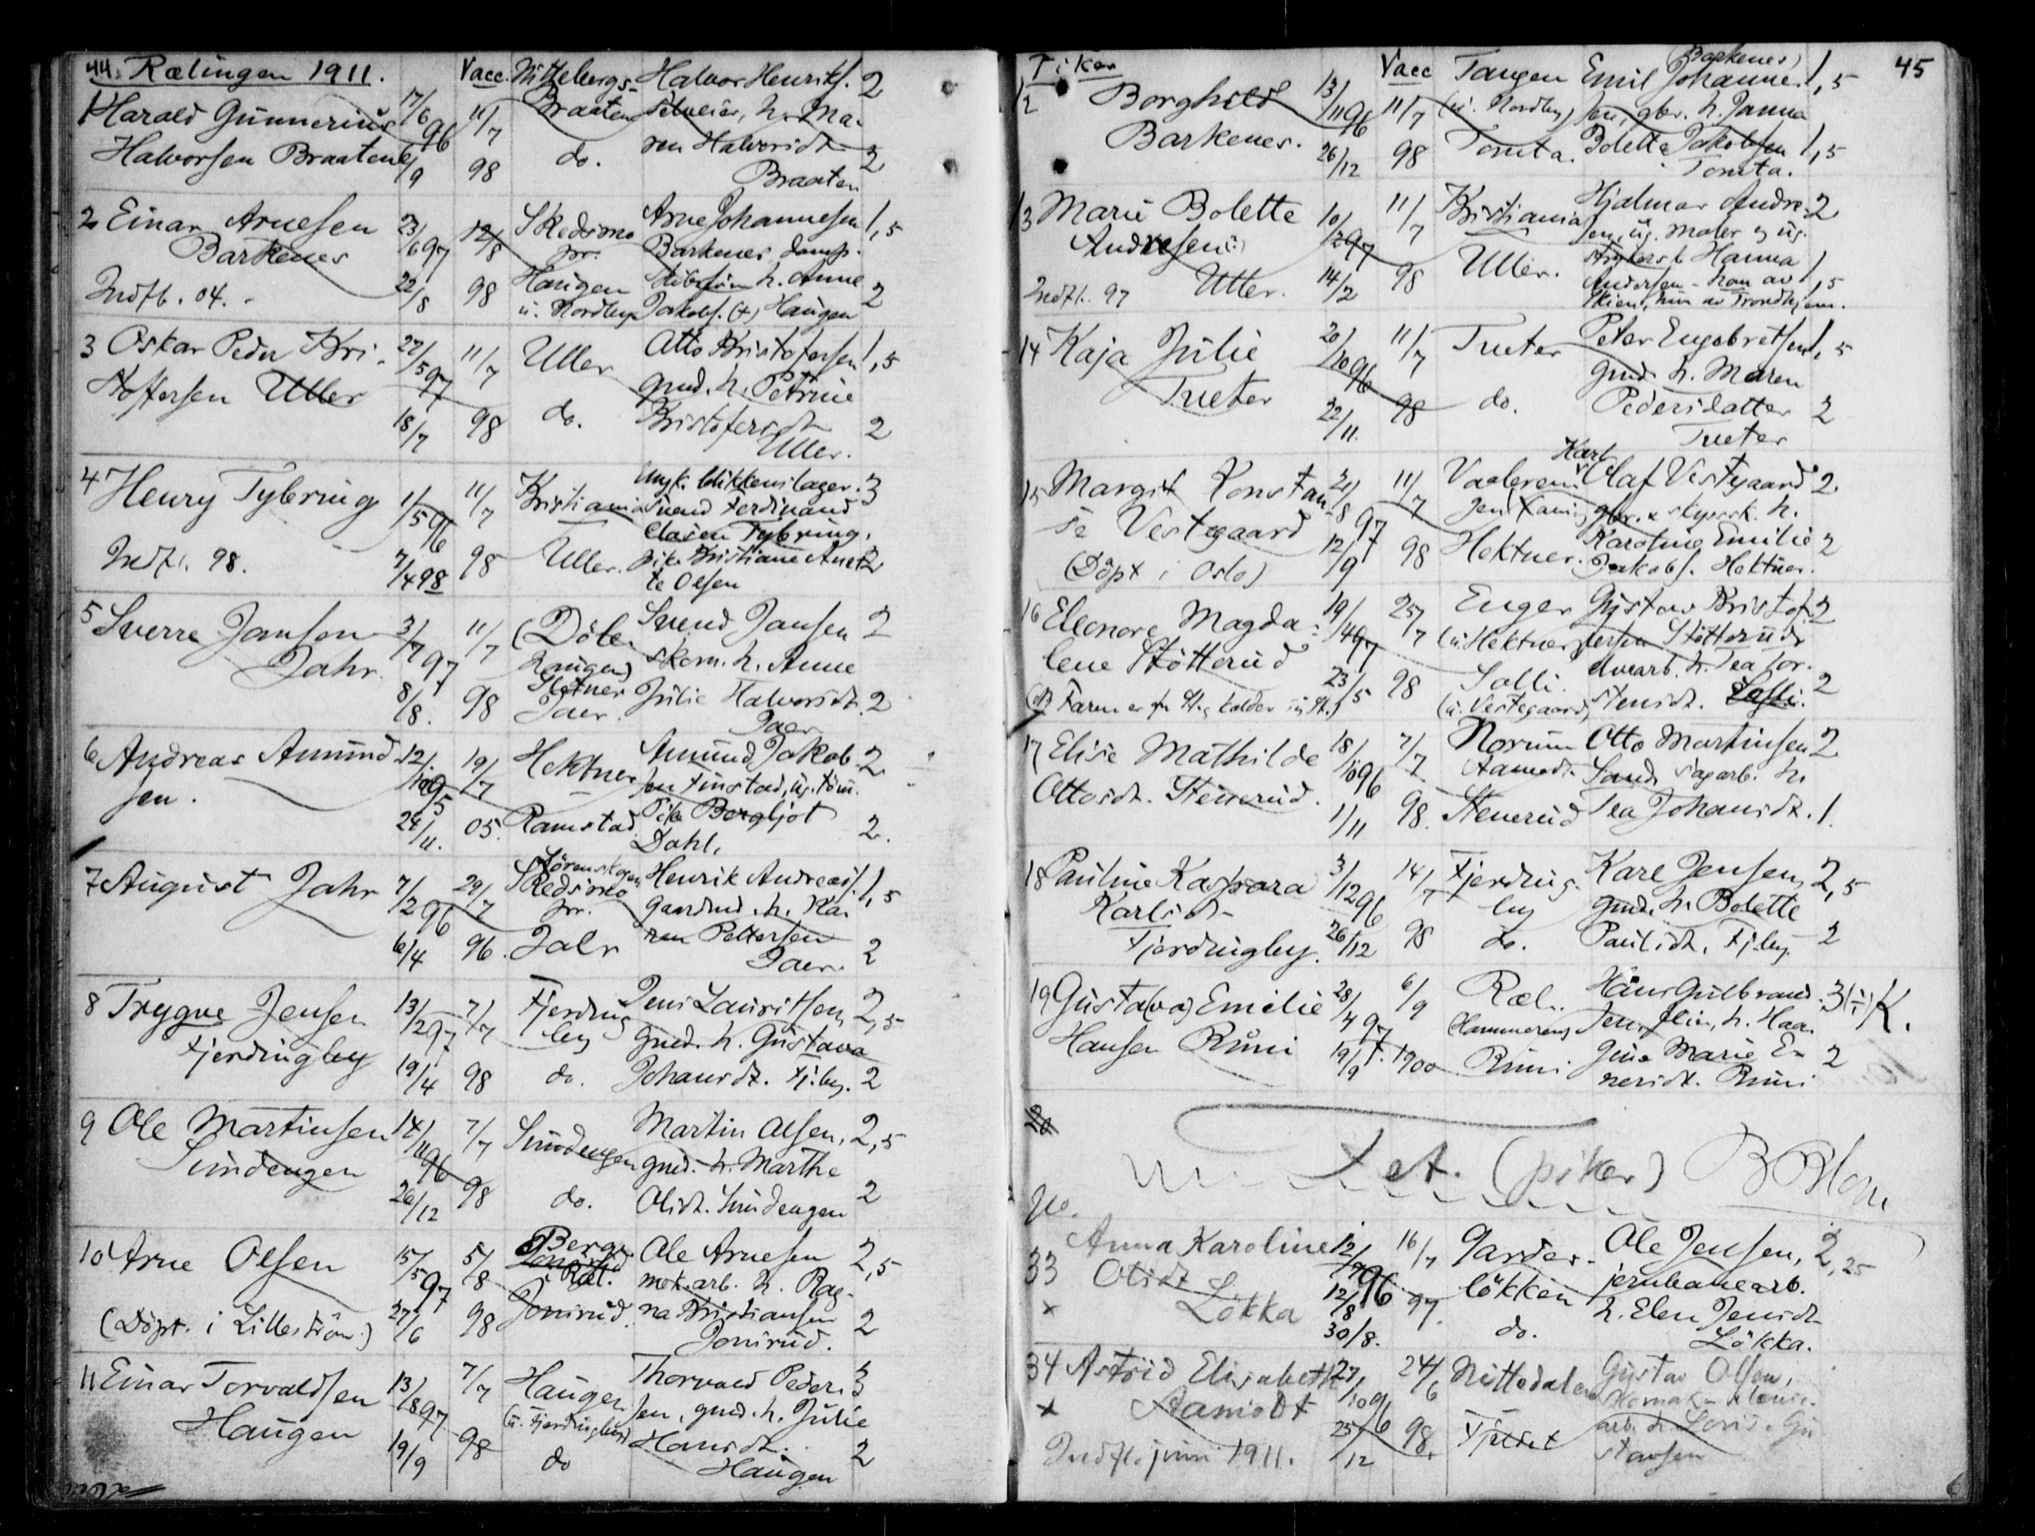 44. Rælingen 1911.
Vacc.
Nittebergs-
Halvor Henriks. 2
1 Harald Gunnerius 17/6 96 11/7 Braaten selveier, h. Ma-
Halvorsen Braaten 6/9 98 do. ren Halvorsdt. 2
Braaten
2 Einar Arnesen 23/6 97 12/8 Skedsmo Arne Johannesen 1,5
Barkenes pr. Barkenes, damp-
22/8 98 Haugen h. Anne 2
Indfl. 04. u. Nordby Jakobs. (+) Haugen
3 Oskar Peder Kri- 27/5 97 11/7 Uller Otto Kristofersen 1,5
stoffersen Uller gmd. h. Petrine
18/7 98 do. Kristofersdt. 2
Uller.
4 Henry Tybring 1/5 96 11/7 Kristiania Ungk. blikkenslager 3
Svend Ferdinand
Clasen Tybring,
Indfl. 98. 7/4 98 98 Uller. pike Kristiane Anet- 2
te Olsen
5 Sverre Jansen 3/7 97 11/7 (Döle Svend Jansen 2
Jahr. haugen) skom. h. Anne
8/8. 98 Sletner Julie Halvorsdt. 2
Jaer. Jaer
6 Andreas Amund- 12/10 95 19/7 Hektner Amund Jakob- 2
sen. sen Finstad, ug. töm.
24/11. 05. Ramstad Pike Bergljot 2.
Dahl.
7 August Jahr 7/2 96 29/7 Lörenskogen Henrik Andreas. 1,5
Skedsmo pr. gaardmd. h. Ka-
6/4 96. Jahr ren Pettersen 2
Jaer.
8 Trygve Jensen 13/2 97 7/7 Fjerding Jens Lauritsen, 2,5
Fjerdingby by gmd. h. Gustava
19/4 98 do. Johansdt. Fj.by. 2
9 Ole Martinsen 14/11 96 7/7 Sundengen Martin Olsen, 2,5
Sundengen gmd. h. Marthe
26/12 98 do. Olisdt. Sundengen 2
10 Arne Olsen 15/5 97 5/8 Berg Ole Arnesen 2,5
i Ræl. mek.arb. h. Rag-
(Döpt. i Lilleström) 27/6 98 Jonsrud. na Kristiansen 2
Jonsrud.
11 Einar Torvaldsen 13/8 97 7/7 Haugen Thorvald Peder- 3
Haugen (u. Fjerdingby) sen, gmd. h. Julie
19/9 98 do Hansdt. 2
Haugen
45
Piker
Vacc
12 Borghild 13/11 96 11/7 Tangen Emil Johanne- (Barkenes) 1,5
Barkenes. (u. Nordby) sen, gbr. h. Janna
26/12 98 Tomta. Bolette Jakobsen 1,5
Tomta.
13 Marie Bolette 10/1 97 11/7 Kristiania Hjalmar Andre- 2
Andresen sen, ug. maler og ug.
Indfl. 97 Uller. 14/2 98 Uller. Hanna 1,5
Andersen - han av
Skien, hun av Trondhjem.
14 Kaja Julie 20/10 96 11/7 Tueter Peter Engebretsen 1,5
Tueter gmd. h. Maren
22/11. 98 do. Pedersdatter 2
Tueter
15 Margit Konstan- 21/8 97 11/7 Vaaleren Karl Olaf Vestgaard 2
se Vestgaard gbr. & skyssk. h.
12/9 98 Hektner. Karoline Emilie 2
(Döpt i Oslo) Jakobs. Hektner.
16 Eleonore Magda- 19/4 97 25/7 Enger Gustav Kristof- 2
lene Stötterud (u. Hektner) fersen Stötterud
23/5 98 Solli. h. Tea Tor-
(Faren er fr. St. og kalder sig St.) (u. Vestgaard) stensdt. Solli. 2
17 Elise Mathilde 18/10 96 7/7 Norum Otto Martinsen 2
Ottosdt. Stenerud. Aamodt Sand sagarb. h.
1/11 98. Stenerud Tea Johansdt. 1.
18 Pauline Kaspara 3/12 96 14/7 Fjerding- Karl Jensen, 2,5
Karlsdt. by gmd. h. Bolette
Fjerdingby. 26/12 98 do. Paulsdt. Fj.by. 2
19 Gusta(va) Emilie 28/4 97 6/9 Ræl. Hans Gulbrand- 3 K.
Hansen Runi (Hammeren) sen, h. Haa-
19/9. 1900 Runi gine Marie Ei- 2
nersdt. Runi
20
(piker)
No.
33 Anna Karoline 12/7 96 16/7 Garder- Ole Jensen, 2,25
Olsdt. lökken jernbanearb.
× Lökka 12/8 97. do. h. Elen Jensdt.
30/8. Lökka.
34 Astrid Elisabeth 27/10 96 24/6 Nittedalen Gustav Olsen,
× Aamodt
25/12 98. Fjeldet arb. h. Lovise Gu
Indfl. juni 1911. stavsen